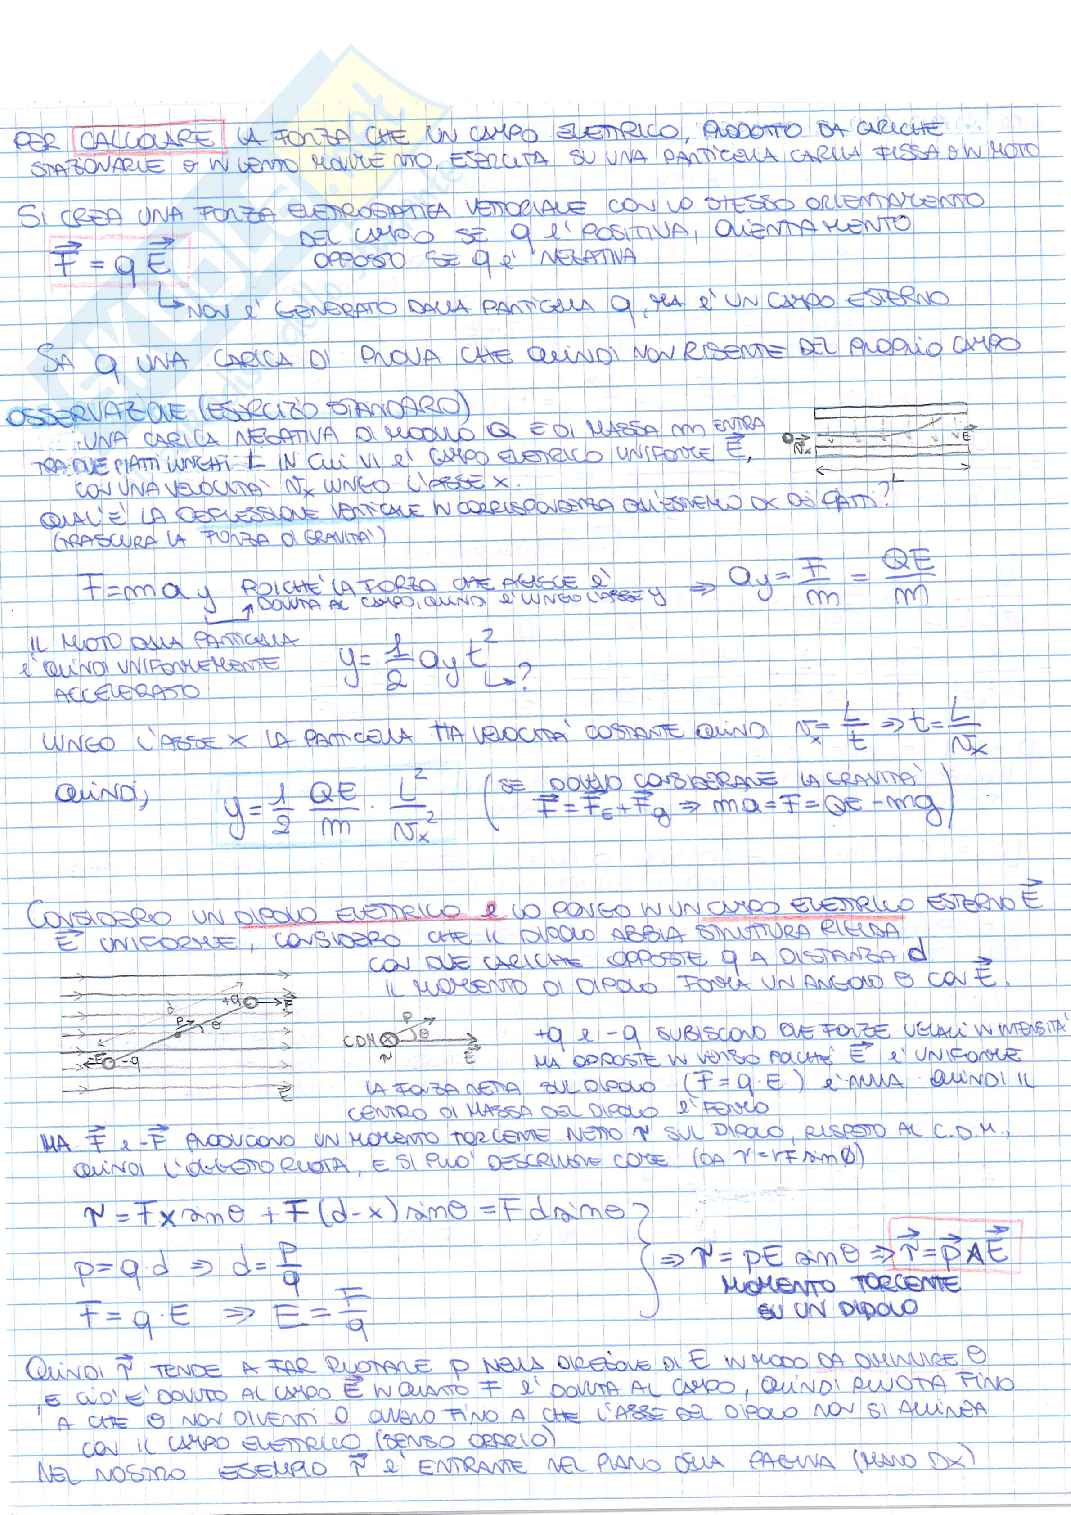 PER CALCOLARE LA FORZA CHE UN CAMPO ELETTRICO, PRODOTTO DA CARICHE
STAZIONARIE O IN LENTO MOVIMENTO, ESERCITA SU UNA PARTICELLA CARICA FISSA O IN MOTO
SI CREA UNA FORZA ELETTROSTATICA VETTORIALE CON LO STESSO ORIENTAMENTO
DEL CAMPO SE q È POSITIVA, ORIENTAMENTO
F⃗ = q E⃗ OPPOSTO SE q È NEGATIVA
↳ NON È GENERATO DALLA PARTICELLA q, MA È UN CAMPO ESTERNO
SIA q UNA CARICA DI PROVA CHE QUINDI NON RISENTE DEL PROPRIO CAMPO
OSSERVAZIONE (ESERCIZIO STANDARD)
UNA CARICA NEGATIVA DI MODULO Q E DI MASSA m ENTRA
TRA DUE PIATTI LUNGHI L IN CUI VI È CAMPO ELETTRICO UNIFORME E⃗,
CON UNA VELOCITÀ Vx LUNGO L'ASSE X.
QUAL'È LA DEFLESSIONE VERTICALE IN CORRISPONDENZA DELL'ESTREMO DX DEI PIATTI?
(TRASCURA LA FORZA DI GRAVITÀ)
Vx E⃗
L
F = m a y POICHÈ LA FORZA CHE AGISCE È ⇒ ay = F/m = QE/m
DOVUTA AL CAMPO, QUINDI È LUNGO L'ASSE y
IL MOTO DELLA PARTICELLA
È QUINDI UNIFORMEMENTE y = 1/2 ay t² ↳ ?
ACCELERATO
LUNGO L'ASSE X LA PARTICELLA HA VELOCITÀ COSTANTE QUINDI Vx = L/t ⇒ t = L/Vx
QUINDI, y = 1/2 QE/m · L²/Vx² (SE DOVESSI CONSIDERARE LA GRAVITÀ
F⃗ = F⃗E + F⃗g ⇒ ma = F = QE - mg)
CONSIDERO UN DIPOLO ELETTRICO E LO PONGO IN UN CAMPO ELETTRICO ESTERNO E⃗
E⃗ UNIFORME, CONSIDERO CHE IL DIPOLO ABBIA STRUTTURA RIGIDA
CON DUE CARICHE OPPOSTE q A DISTANZA d
IL MOMENTO DI DIPOLO FORMA UN ANGOLO θ CON E⃗.
d +q E⃗
P θ
-q
E⃗
CDM P θ E⃗
τ
+q E -q SUBISCONO DUE FORZE UGUALI IN INTENSITÀ
MA OPPOSTE IN VERSO POICHÈ E⃗ È UNIFORME
LA FORZA NETTA SUL DIPOLO (F = q · E) È NULLA QUINDI IL
CENTRO DI MASSA DEL DIPOLO È FERMO
MA F⃗ E -F⃗ PRODUCONO UN MOMENTO TORCENTE NETTO τ SUL DIPOLO, RISPETTO AL C.D.M.,
QUINDI L'OGGETTO RUOTA, E SI PUÒ DESCRIVERE COME (DA τ = rF sinΦ)
τ = F x sinθ + F (d-x) sinθ = F d sinθ
p = q · d ⇒ d = p/q
F = q · E ⇒ E = F/q
⇒ τ = pE sinθ ⇒ τ⃗ = p⃗ ∧ E⃗
MOMENTO TORCENTE
SU UN DIPOLO
QUINDI τ⃗ TENDE A FAR RUOTARE p NELLA DIREZIONE DI E IN MODO DA DIMINUIRE θ
E CIÒ È DOVUTO AL CAMPO E⃗ IN QUANTO F È DOVUTA AL CAMPO, QUINDI RUOTA FINO
A CHE θ NON DIVENTI 0 OVVERO FINO A CHE L'ASSE DEL DIPOLO NON SI ALLINEA
CON IL CAMPO ELETTRICO (SENSO ORARIO)
NEL NOSTRO ESEMPIO τ⃗ È ENTRANTE NEL PIANO DELLA PAGINA (MANO DX)